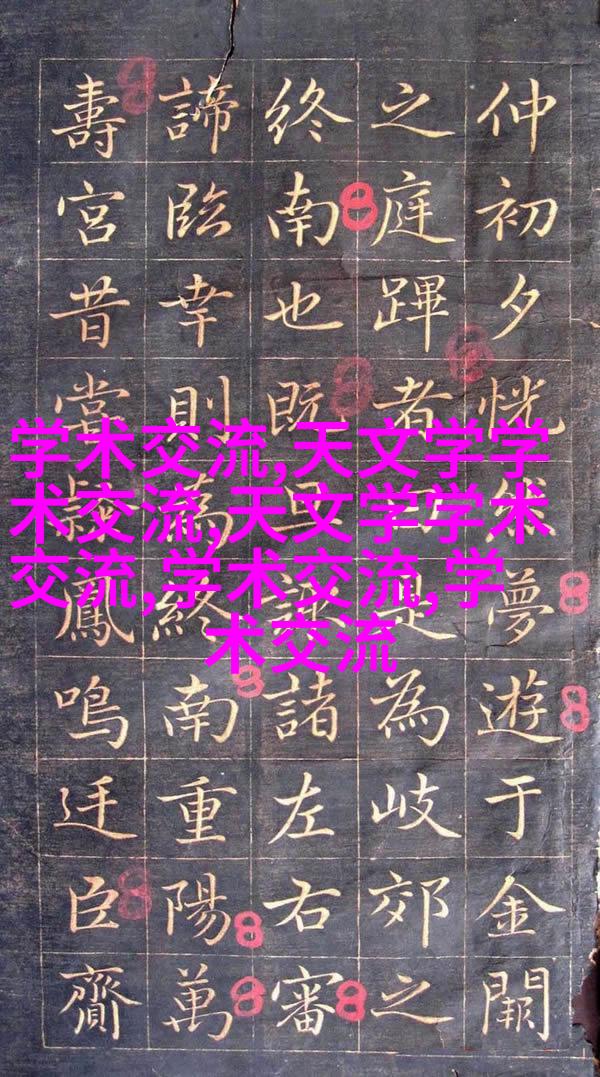 仲初夕恍然夢遊于金闕
之庭蹕者是為岐郊之
終南也既旦諸左右審
諦臨幸則為終南重陽萬
壽宮昔鳳鳴臣齎
学术交流,天文学学
术交流,天文学学术
交流,学术交流,学
术交流